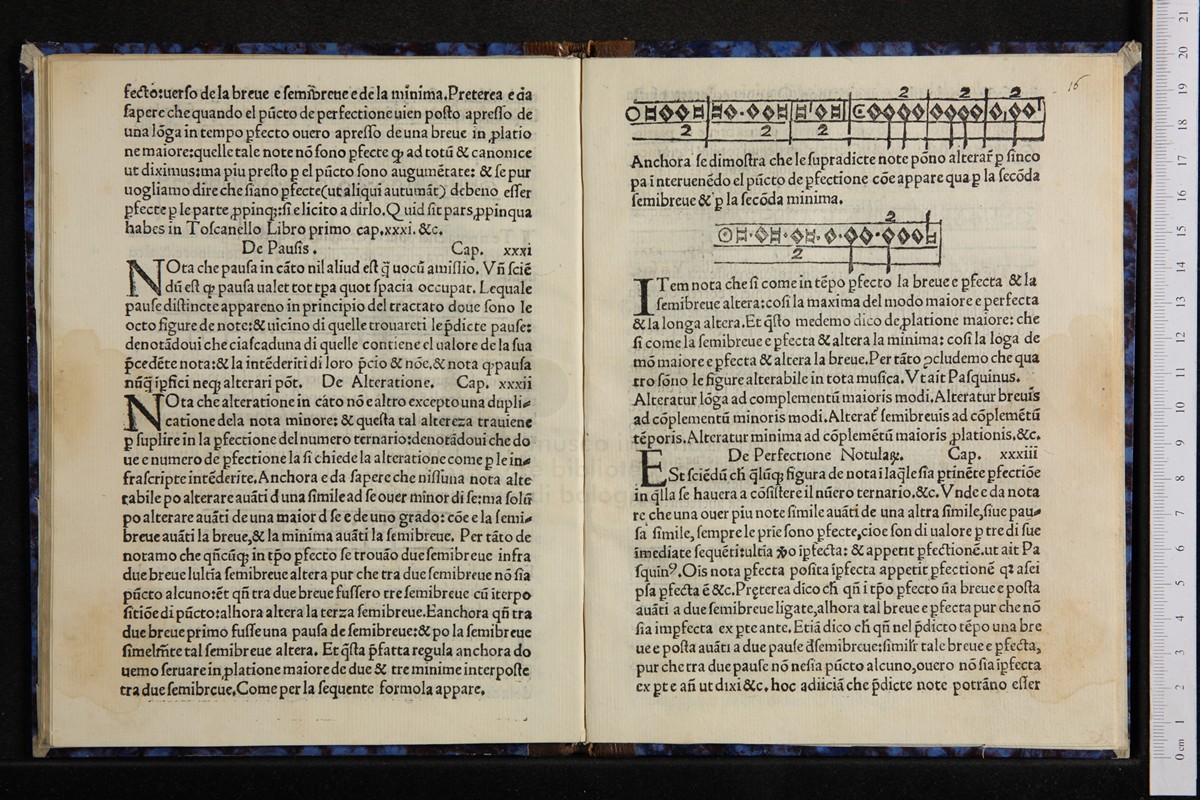 fecto:uerso de la breue e semibreue e de la minima.Preterea e da
sapere che quando el pũcto de perfectione uien posto apresso de
una lõga in tempo pfecto ouero apresso de una breue in platio
ne maiore:quelle tale note nõ sono pfecte qp ad totũ & canonice
ut diximus:ma piu presto p el pũcto sono augumẽtate: & se pur
uogliamo dire che siano pfecte(ut aliqui autumãt) debeno esser
pfecte p le parte ppinq:si e licito a dirlo.Quid sit pars ppinqua
habes in Toscanello Libro primo cap.xxxi.&c.
De Pausis . Cap. xxxi
NOta che pausa in cãto nil aliud est q̃ uocũ amissio. Vñ sciẽ
dũ est qp pausa ualet tot tpa quot spacia occupat. Lequale
pause distincte appareno in principio del tractato doue sono le
octo figure de note:& uicino di quelle trouareti le p̃dicte pause:
denotãdoui che ciascaduna di quelle contiene el ualore de la sua
p̃cedẽte nota:& la intẽderiti di loro p̃cio & nõe.& nota qp pausa
nũq̃ ip̃fici neq; alterari põt. De Alteratione. Cap. xxxii
NOta che alteratione in cãto nõ e altro excepto una dupli=
catione dela nota minore: & questa tal altereza trauiene
p suplire in la pfectione del numero ternario:denotãdoui che do
ue e numero de pfectione la si chiede la alteratione come p le in=
frascripte intẽderite.Anchora e da sapere che nissuna nota alte
rabile po alterare auãti d una simile ad se ouer minor di se:ma solũ
po alterare auãti de una maior d se e de uno grado: cõe e la semi=
breue auãti la breue,& la minima auãti la semibreue. Per tãto de
notamo che qñcũq; in tp̃o pfecto se trouão due semibreue infra
due breue lultĩa semibreue altera pur che tra due semibreue nõ sia
pũcto alcuno:ẽt qñ tra due breue fussero tre semibreue cũ iterpo
sitiõe di pũcto:alhora altera la terza semibreue.Eanchora qñ tra
due breue primo fusse una pausa de semibreue:& po la semibreue
simelm̃te tal semibreue altera. Et q̃sta p̃fatta regula anchora do
uemo seruare in platione maiore de due & tre minime interposte
tra due semibreue.Come per la sequente formola appare.
16
2 2 2
2 2 2
Anchora se dimostra che le supradicte note põno alterar̃ p sinco
pa ĩ interuenẽdo el pũcto de pfectione cõe appare qua p la secõda
semibreue & p la secõda minima.
2
2
ITem nota che si come in tẽpo pfecto la breue e pfecta & la
semibreue altera:cosi la maxima del modo maiore e perfecta
& la longa altera.Et q̃sto medemo dico de platione maiore: che
si come la semibreue e pfecta & altera la minima: cosi la lõga de
mõ maiore e pfecta & altera la breue.Per tãto ɔcludemo che qua
tro sõno le figure alterabile in tota musica. Vt ait Pasquinus.
Alteratur lõga ad complementũ maioris modi.Alteratur breuis
ad cõplementũ minoris modi.Alterat̃ semibreuis ad cõplemẽtũ
tẽporis.Alteratur minima ad cõplemẽtũ maioris platiónis.&c.
De Perfectione Notulaꝝ. Cap. xxxiii
ESt sciẽdũ ch̃ q̃lũq; figura de nota ĩ laq̃le sia p̃tinẽte pfectiõe
in q̃lla se hauera a cõsistere il nũero ternario.&c. Vnde e da nota
re che una ouer piu note simile auãti de una altra simile,siue pau=
sa simile, sempre le prĩe sono pfecte,cioe son di ualore p tre di sue
ĩmediate sequẽti:ultĩa ꝟo ip̃fecta: & appetit pfectionẽ.ut ait Pa
squinꝰ.Ois nota pfecta posita ip̃fecta appetit pfectionẽ qꝛ a sei
psa pfecta ẽ &c.Pręterea dico ch̃ qñ ĩ tp̃o pfecto ũa breue e posta
auãti a due semibreue ligate,alhora tal breue e pfecta pur che nõ
sia impfecta ex pte ante. Etiã dico ch̃ qñ nel p̃dicto tẽpo una bre
ue e posta auãti a due pause d̃ semibreue:simil̃r tale breue e pfecta,
pur che tra due pause nõ nesia pũcto alcuno,ouero nõ sia ip̃fecta
ex pte añ ut dixi &c. hoc adiiciã che p̃dicte note potrãno esser